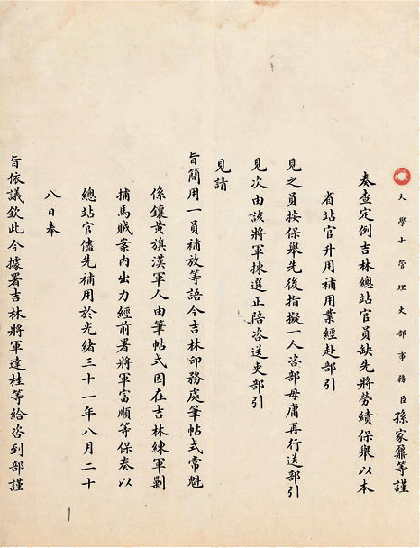 大學士管理吏部事務臣孫家鼐等謹
奏查定例吉林總站官員缺先將勞績保舉以本
省站官升用補用業經赴部引
見之員按保舉先後指擬一人咨部毋庸再行送部引
見次由該將軍揀選正陪咨送吏部引
見請
旨簡用一員補放等語今吉林印務處筆帖式常魁
係鑲黃旗漢軍人由筆帖式因在吉林練軍剿
捕馬賊案內出力經前署將軍富順等保奏以
總站官儘先補用於光緒三十一年八月二十
八日奉
旨依議欽此今據署吉林將軍達桂等給咨到部謹